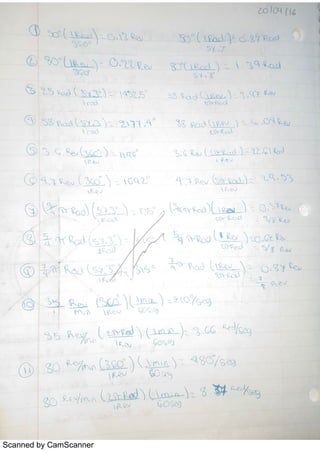 20/04/16
① 50° (1Rev/360°) = 0.13 Rev 50° (1Rad/57.3°) = 0.87 Rad
② 80° (1Rev/360°) = 0.22 Rev 80° (1Rad/57.3°) = 1.39 Rad
③ 25 Rad (57.3°/1rad) = 1432.5° 25 Rad (1Rev/2πRad) = 3.97 Rev
④ 38 Rad (57.3/1rad) = 2177.4° 38 Rad (1Rev/2πRad) = 6.04 Rev
⑤ 3.6 Rev (360°/1Rev) 3.6 Rev (2πRad/1Rev) = 22.61 Rad
⑥ 4.7 Rev (360°/1Rev) = 1692° 4.7 Rev (2πRad/1Rev) = 29.53
⑦ πRad (57.3°/1Rad) (1Rev/2πRad)
⑧ 5/4 πRad (57.3°/1Rad) 5/4 πRad (1Rev/2πRad) = 5/8 Rev
⑨ 7/4 πRad (57.3°/1Rad) = 315° 7/4 πRad (1Rev/2πRad) = 0.87 Rev
⑩ 35 Rev/Min (360°/1Rev) (1min/60sg) = 210°/seg
35 Rev/min (2πRad/1Rev) (1min/60sg) = 3.66 Rad/seg
⑪ 80 Rev/min (360°/1Rev) (1min/60sg) = 480°/seg
80 Rev/min (2πRad/1Rev) (1min/60sg) = 8.37 Rad/seg
Scanned by CamScanner